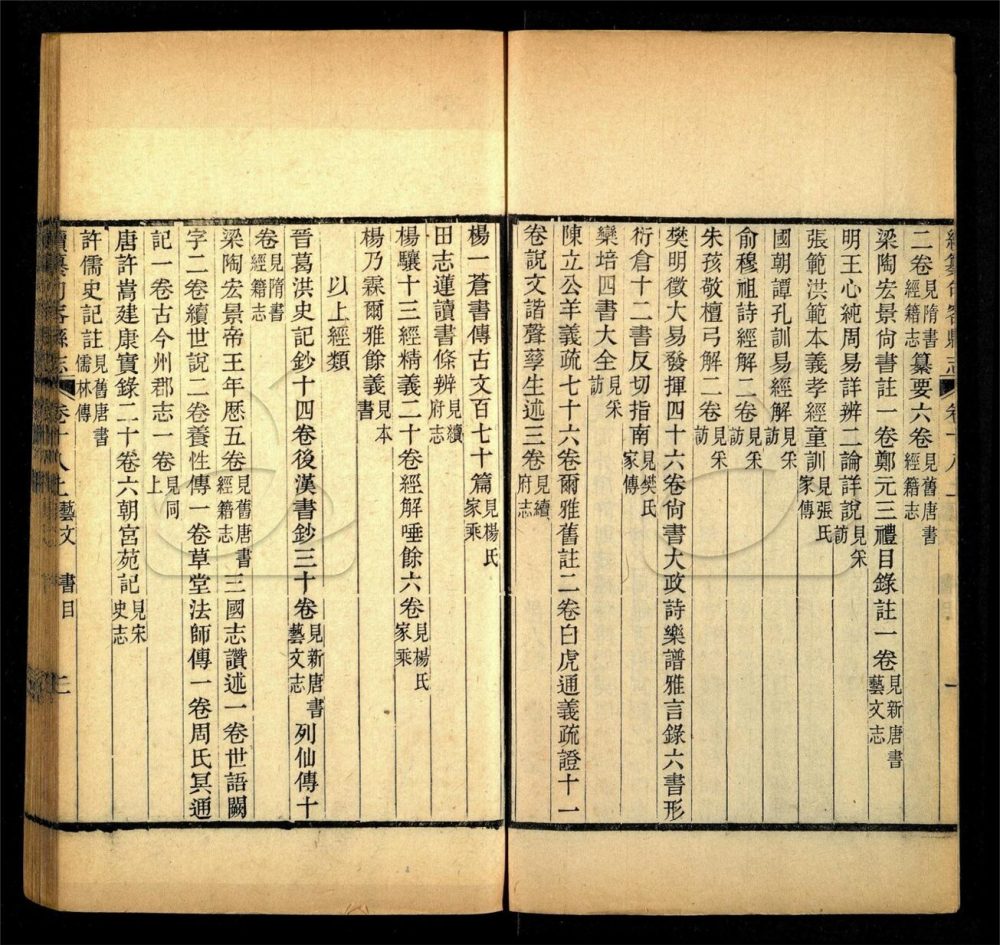 續纂句容縣志 卷十八上
二卷見隋書經籍志纂要六卷見舊唐書經籍志
梁陶宏景尙書註一卷鄭元三禮目錄註一卷見新唐書藝文志
明王心純周易詳辨二論詳說見采訪
張範洪範本義孝經童訓見張氏家傳
國朝譚孔訓易經解見采訪
俞穆祖詩經解二卷見采訪
朱孩敬檀弓解二卷見采訪
樊明徵大易發揮四十六卷尙書大政詩樂譜雅言錄六書形
衍倉十二書反切指南見樊氏家傳
欒培四書大全見采訪
陳立公羊義疏七十六卷爾雅舊註二卷白虎通義疏證十一
卷說文諧聲孳生述三卷見續府志
楊一蒼書傳古文百七十篇見楊氏家乘
田志蓮讀書條辨見續府志
楊驤十三經精義二十卷經解唾餘六卷見楊氏家乘
楊乃霖爾雅餘義見本書
以上經類
晉葛洪史記鈔十四卷後漢書鈔三十卷見新唐書藝文志列仙傳十
卷見隋書經籍志
梁陶宏景帝王年歷五卷見舊唐書經籍志三國志讚述一卷世語闕
字二卷續世說二卷養性傳一卷草堂法師傳一卷周氏冥通
記一卷古今州郡志一卷見同上
唐許嵩建康實錄二十卷六朝宮苑記見宋史志
許儒史記註見舊唐書儒林傳
續纂句容縣志 卷十八上 藝文 書目 二